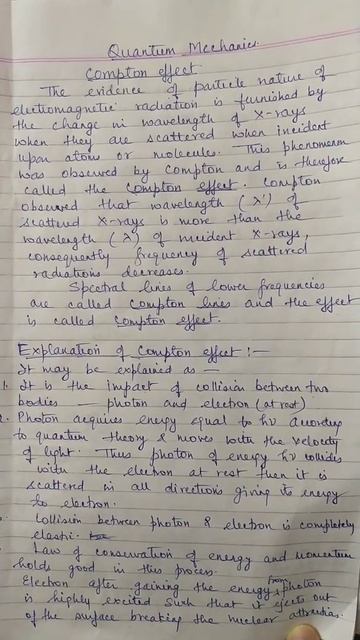 Quantum Mechanics
Compton effect
The evidence of particle nature of
electromagnetic radiation is furnished by
the change in wavelength of X-rays
when they are scattered when incident
upon atoms or molecules. This phenomenon
was observed by Compton and is therefore
called the Compton effect. Compton
observed that wavelength (λ') of
scattered X-rays is more than the
wavelength (λ) of incident X-rays,
consequently frequency of scattered
radiations decreases.
Spectral lines of lower frequencies
are called Compton lines and the effect
is called Compton effect.
Explanation of Compton effect :—
It may be explained as —
1. It is the impact of collision between two
bodies — photon and electron (at rest)
2. Photon acquires energy equal to hν according
to quantum theory & moves with the velocity
of light. Thus photon of energy hν collides
with the electron at rest then it is
scattered in all directions giving its energy
to electron.
Collision between photon & electron is completely
elastic.
Law of conservation of energy and momentum
holds good in this process.
Electron after gaining the energy from photon
is highly excited such that it ejects out
of the surface breaking the nuclear attraction.